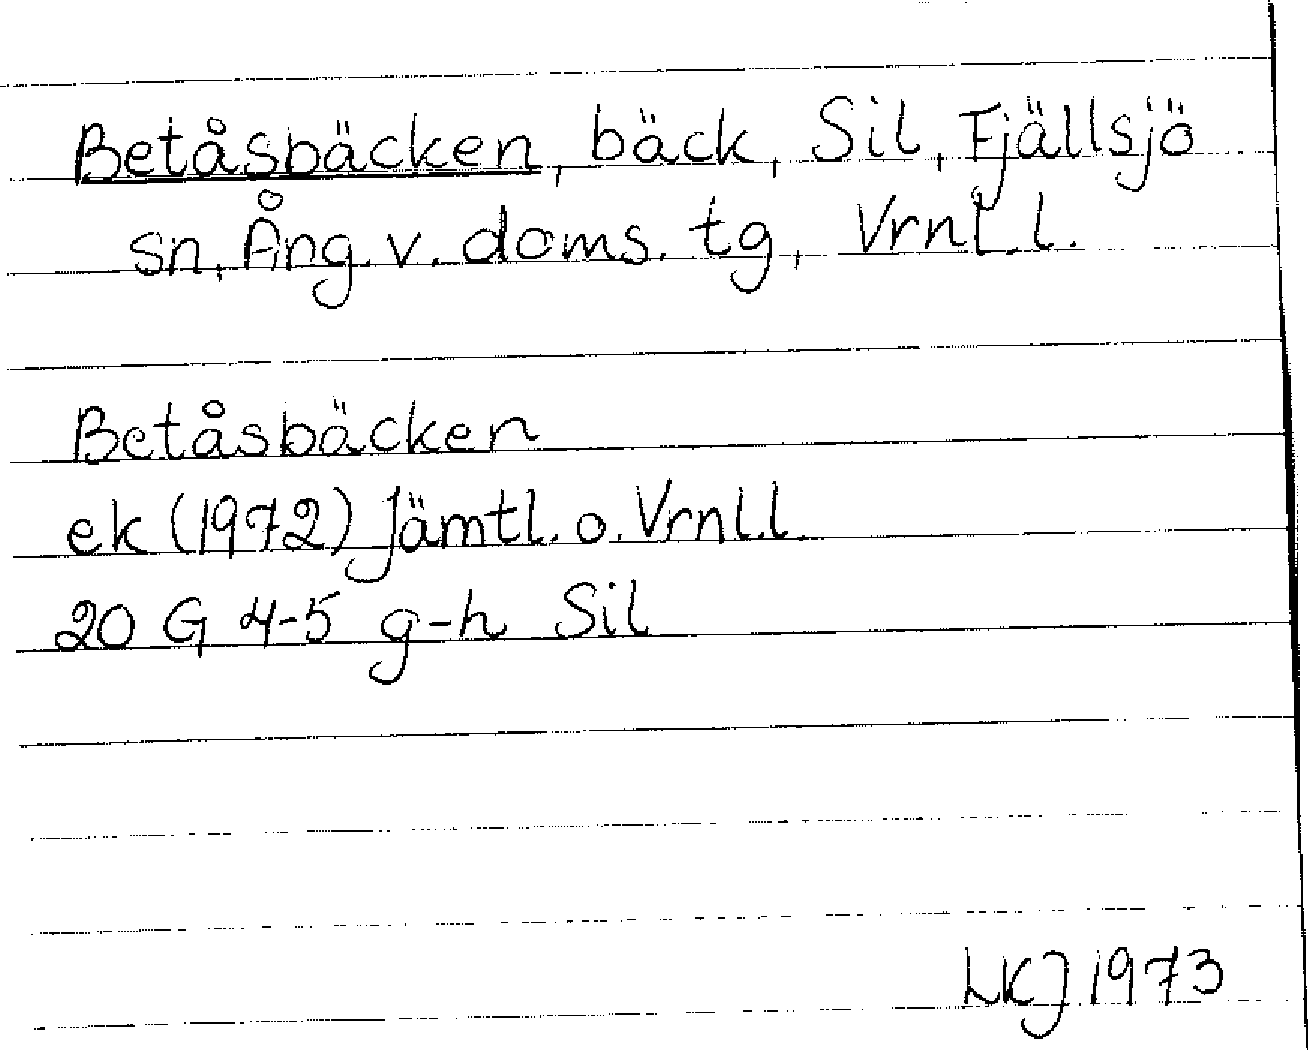 Betåsbäcken, bäck, Sil, Fjällsjö
sn, Ång. v. doms. tg, Vrnl. l.
Betåsbäcken
ek (1972) Jämtl. o. Vrnl.l.
20 G 4-5 g-h Sil
LKJ 1973